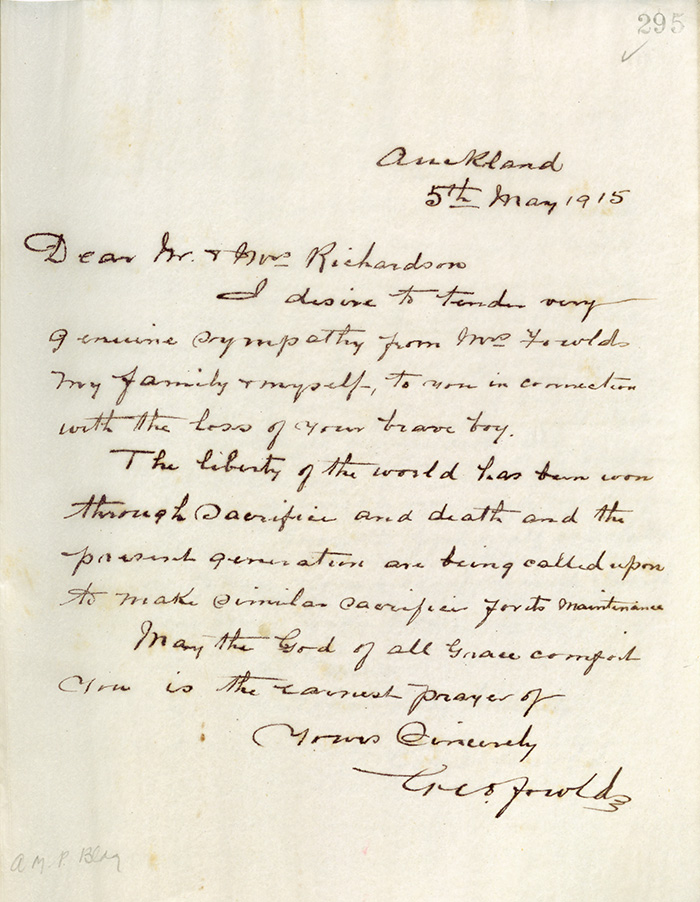 295
Auckland
5th May 1915
Dear Mr. & Mrs Richardson
I desire to tender very
genuine sympathy from Mrs Fowlds
my family & myself, to you in connection
with the loss of your brave boy.
The liberty of the world has been won
through sacrifice and death and the
present generation are being called upon
to make similar sacrifice for its maintenance
May the God of all Grace comfort
you is the earnest prayer of
Yours Sincerely
Geo. Fowlds
A.M.P. Bldg